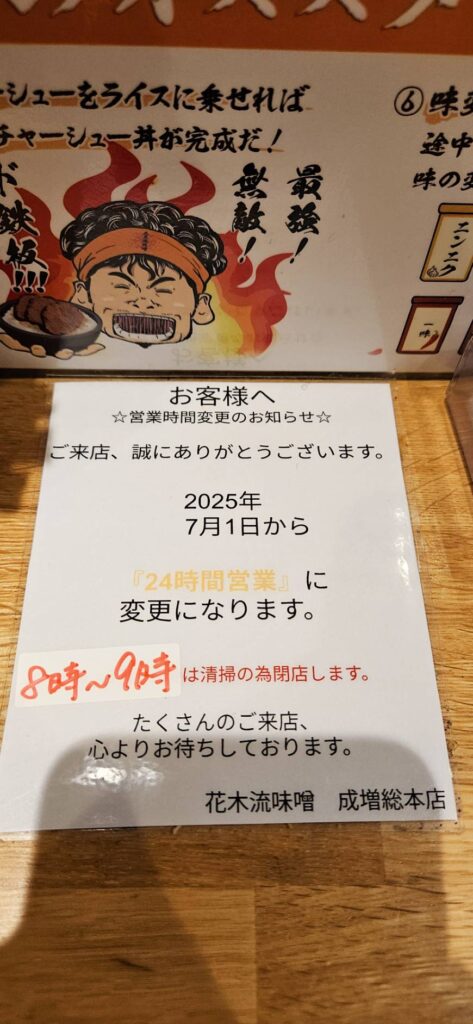 ーシューをライスに乗せれば
チャーシュー丼が完成だ！
最強！
無敵！
ド鉄板!!!
⑥味変
途中
味の変
ニンニク
一味
お客様へ
☆営業時間変更のお知らせ☆
ご来店、誠にありがとうございます。
2025年
7月1日から
『24時間営業』に
変更になります。
8時～9時は清掃の為閉店します。
たくさんのご来店、
心よりお待ちしております。
花木流味噌　成増総本店